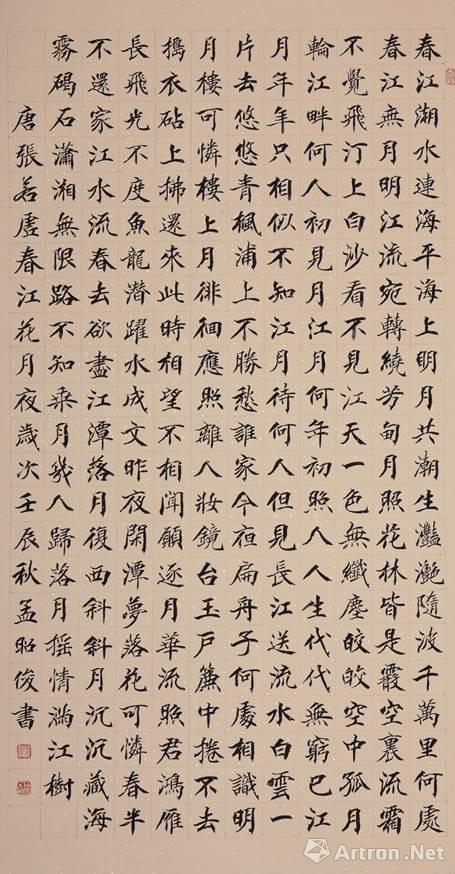 春江潮水連海平海上明月共潮生灩灩隨波千萬里何處
春江無月明江流宛轉繞芳甸月照花林皆是霰空裏流霜
不覺飛汀上白沙看不見江天一色無纖塵皎皎空中孤月
輪江畔何人初見月江月何年初照人人生代代無窮已江
月年年只相似不知江月待何人但見長江送流水白雲一
片去悠悠青楓浦上不勝愁誰家今夜扁舟子何處相識明
月樓可憐樓上月徘徊應照離人妝鏡台玉戶簾中捲不去
搗衣砧上拂還來此時相望不相聞願逐月華流照君鴻雁
長飛光不度魚龍潛躍水成文昨夜閑潭夢落花可憐春半
不還家江水流春去欲盡江潭落月復西斜斜月沉沉藏海
霧碣石瀟湘無限路不知乘月幾人歸落月搖情滿江樹
唐張若虛春江花月夜歲次壬辰秋孟昭俊書
Artron.Net
雅昌艺术网